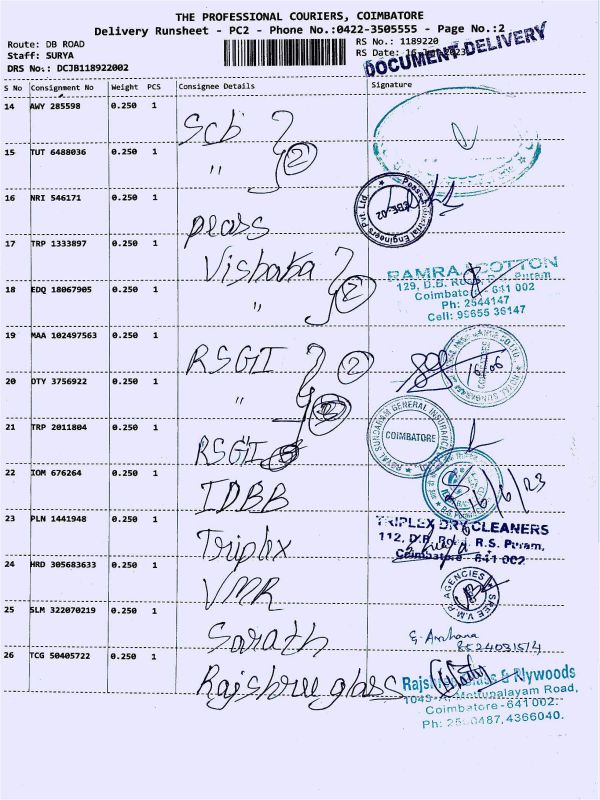 THE PROFESSIONAL COURIERS, COIMBATORE
Delivery Runsheet - PC2 - Phone No.:0422-3505555 - Page No.:2
Route: DB ROAD
RS No.: 1189220
Staff: SURYA
RS Date: 16
DRS No.: DCJB118922002
DOCUMENT DELIVERY
S No Consignment No Weight PCS Consignee Details Signature
14 AWY 285598 0.250 1 Scb 2
15 TUT 6488036 0.250 1 "
16 NRI 546171 0.250 1 peass
17 TRP 1333897 0.250 1 Vishaka 2
18 EDQ 18067905 0.250 1 "
RAMRAJ COTTON
129, D.B. Road, Puram,
Coimbatore - 641 002
Ph: 2544147
Cell: 98655 36147
19 MAA 102497563 0.250 1 RSGI 2
16/06
20 OTY 3756922 0.250 1 "
21 TRP 2011804 0.250 1 RSGI
ROYAL SUNDARAM GENERAL INSURANCE
COIMBATORE
22 IOM 676264 0.250 1 IDBB
16/6/23
23 PLN 1441948 0.250 1 Triplex
TRIPLEX DRY CLEANERS
112, D.B. Road, R.S. Puram,
Coimbatore - 641 002
24 HRD 305683633 0.250 1 VMR
SREE V.M.R. AGENCIES
25 SLM 322070219 0.250 1 Sarath
26 TCG 50405722 0.250 1 Rajshree glass
Glass & Plywoods
Mettupalayam Road,
Coimbatore - 641 002.
4366040.